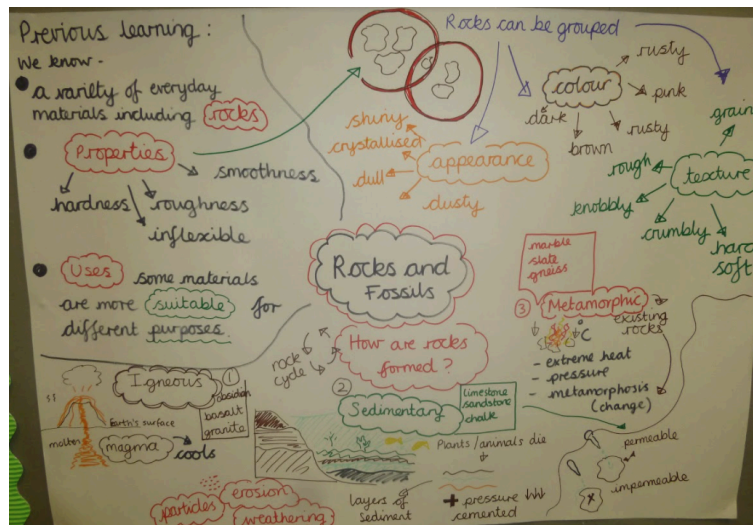 Previous learning :
We know -
a variety of everyday
materials including rocks
Properties
smoothness
hardness
roughness
inflexible
Uses some materials
are more suitable for
different purposes.
Rocks can be grouped
colour
rusty
pink
rusty
brown
dark
appearance
shiny
crystallised
dull
dusty
texture
grain
rough
knobbly
crumbly
hard
soft
Rocks and
Fossils
How are rocks
formed ?
rock
cycle
1
Igneous
obsidian
basalt
granite
Earth's surface
molten
magma
cools
2
Sedimentary
limestone
sandstone
chalk
Plants/animals die
layers of
sediment
+ pressure
cemented
particles
erosion
weathering
marble
slate
gneiss
3
Metamorphic
existing
rocks
°C
- extreme heat
- pressure
- metamorphosis
(change)
permeable
impermeable